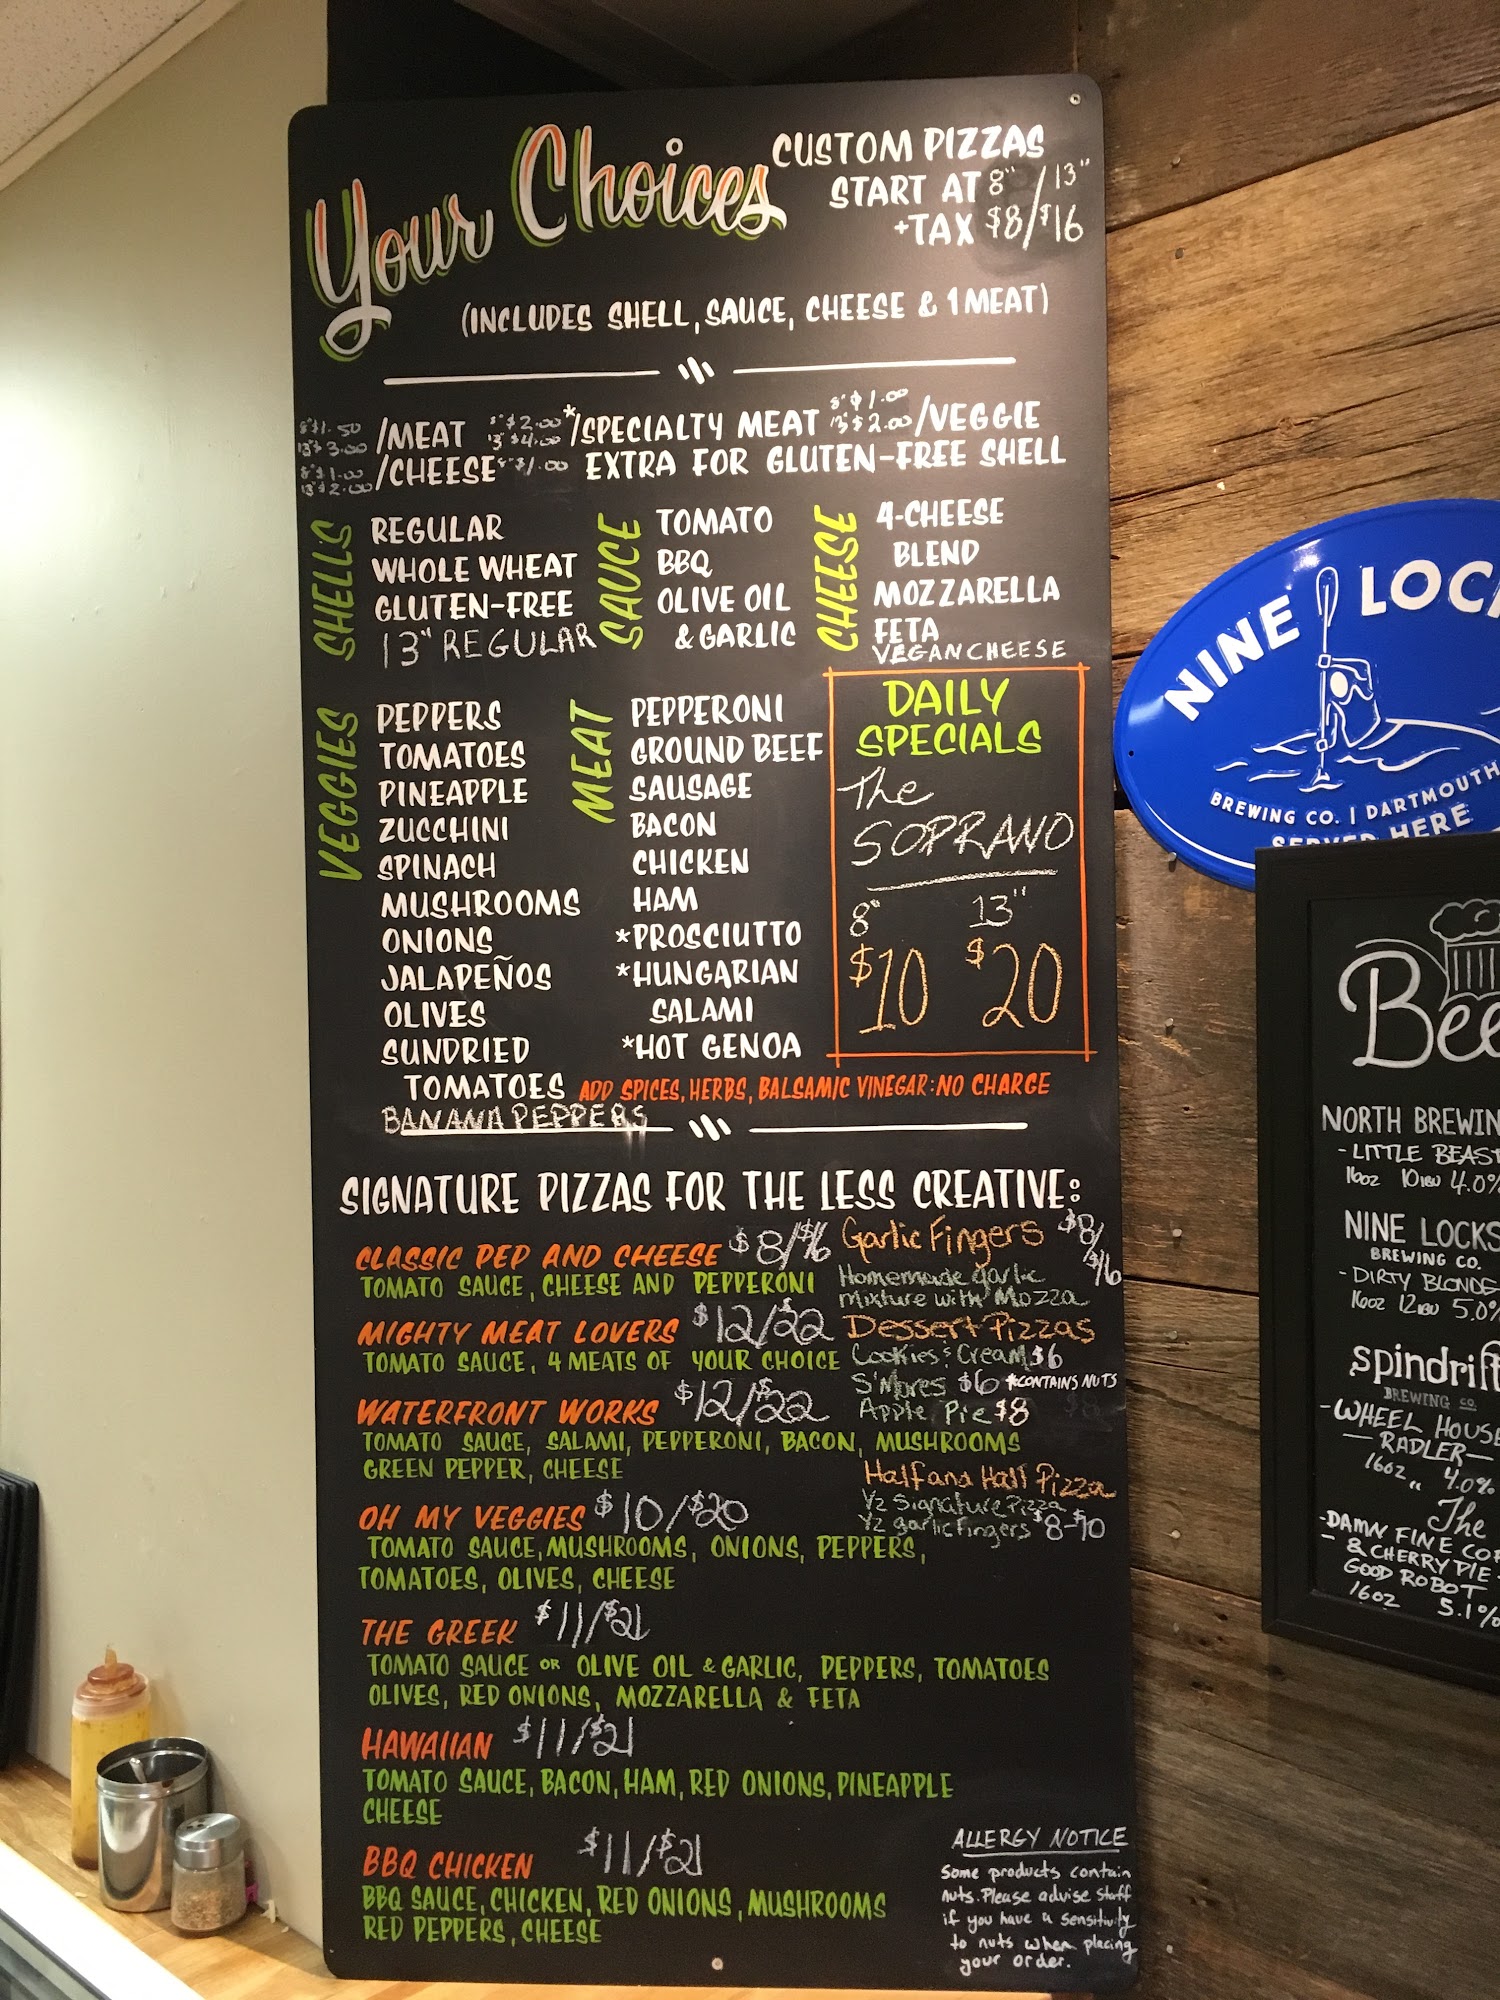 Your Choices
CUSTOM PIZZAS
START AT 8"/13"
+TAX $8/$16
(INCLUDES SHELL, SAUCE, CHEESE & 1 MEAT)
8"$1.50 13"$3.00 /MEAT 8"$2.00 13"$4.00 */SPECIALTY MEAT 8"$1.00 13"$2.00 /VEGGIE
8"$1.00 13"$2.00 /CHEESE 8"$1.00 EXTRA FOR GLUTEN-FREE SHELL
SHELLS
REGULAR
WHOLE WHEAT
GLUTEN-FREE
13" REGULAR
SAUCE
TOMATO
BBQ
OLIVE OIL
& GARLIC
CHEESE
4-CHEESE
BLEND
MOZZARELLA
FETA
VEGAN CHEESE
VEGGIES
PEPPERS
TOMATOES
PINEAPPLE
ZUCCHINI
SPINACH
MUSHROOMS
ONIONS
JALAPEÑOS
OLIVES
SUNDRIED
TOMATOES
BANANA PEPPERS
MEAT
PEPPERONI
GROUND BEEF
SAUSAGE
BACON
CHICKEN
HAM
*PROSCIUTTO
*HUNGARIAN
SALAMI
*HOT GENOA
DAILY
SPECIALS
The
SOPRANO
8" 13"
$10 $20
ADD SPICES, HERBS, BALSAMIC VINEGAR: NO CHARGE
SIGNATURE PIZZAS FOR THE LESS CREATIVE:
CLASSIC PEP AND CHEESE $8/$16
TOMATO SAUCE, CHEESE AND PEPPERONI
MIGHTY MEAT LOVERS $12/$22
TOMATO SAUCE, 4 MEATS OF YOUR CHOICE
WATERFRONT WORKS $12/$22
TOMATO SAUCE, SALAMI, PEPPERONI, BACON, MUSHROOMS
GREEN PEPPER, CHEESE
OH MY VEGGIES $10/$20
TOMATO SAUCE, MUSHROOMS, ONIONS, PEPPERS,
TOMATOES, OLIVES, CHEESE
THE GREEK $11/$21
TOMATO SAUCE OR OLIVE OIL & GARLIC, PEPPERS, TOMATOES
OLIVES, RED ONIONS, MOZZARELLA & FETA
HAWAIIAN $11/$21
TOMATO SAUCE, BACON, HAM, RED ONIONS, PINEAPPLE
CHEESE
BBQ CHICKEN $11/$21
BBQ SAUCE, CHICKEN, RED ONIONS, MUSHROOMS
RED PEPPERS, CHEESE
Garlic Fingers $8/$16
Homemade garlic
mixture with Mozza
Dessert Pizzas
Cookies & Cream $6
S'Mores $6 *CONTAINS NUTS
Apple Pie $8
Half and Half Pizza
1/2 Signature Pizza
1/2 garlic fingers $8-$10
ALLERGY NOTICE
Some products contain
nuts. Please advise staff
if you have a sensitivity
to nuts when placing
your order.
NINE LOC
BREWING CO. | DARTMOUTH
SERVED HERE
Bee
NORTH BREWIN
- LITTLE BEAST
16oz 10 IBU 4.0%
NINE LOCKS
BREWING CO.
- DIRTY BLONDE
16oz 12 IBU 5.0%
spindrift
BREWING CO.
- WHEEL HOUSE
RADLER -
16oz 4.0%
The
- DAMN FINE COF
& CHERRY PIE -
GOOD ROBOT
16oz 5.1%